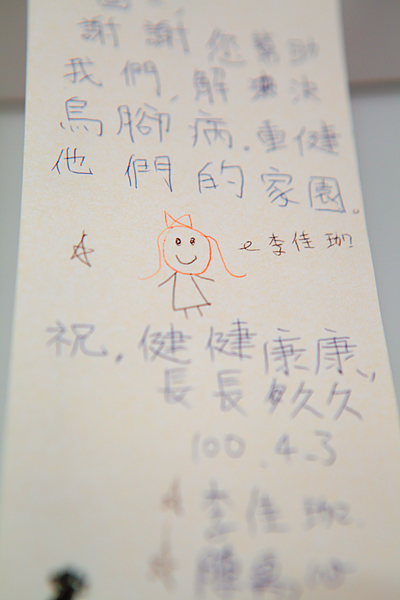 謝謝您幫助
我們，解決
烏腳病，重健
他們的家園。
李佳珈
祝，健健康康，
長長久久
100.4.3
李佳珈